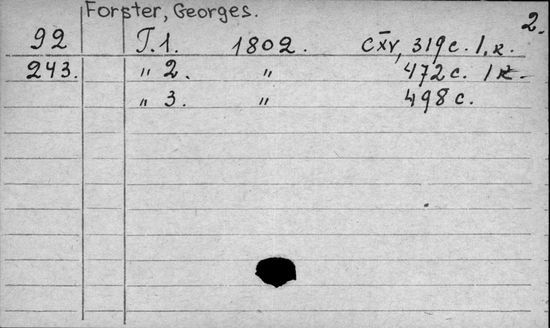 Forster, Georges.
2.
92 T.1. 1802. CXV, 319 c. 1 к.
243. " 2. " 472 c. 1 к.
" 3. " 498 c.